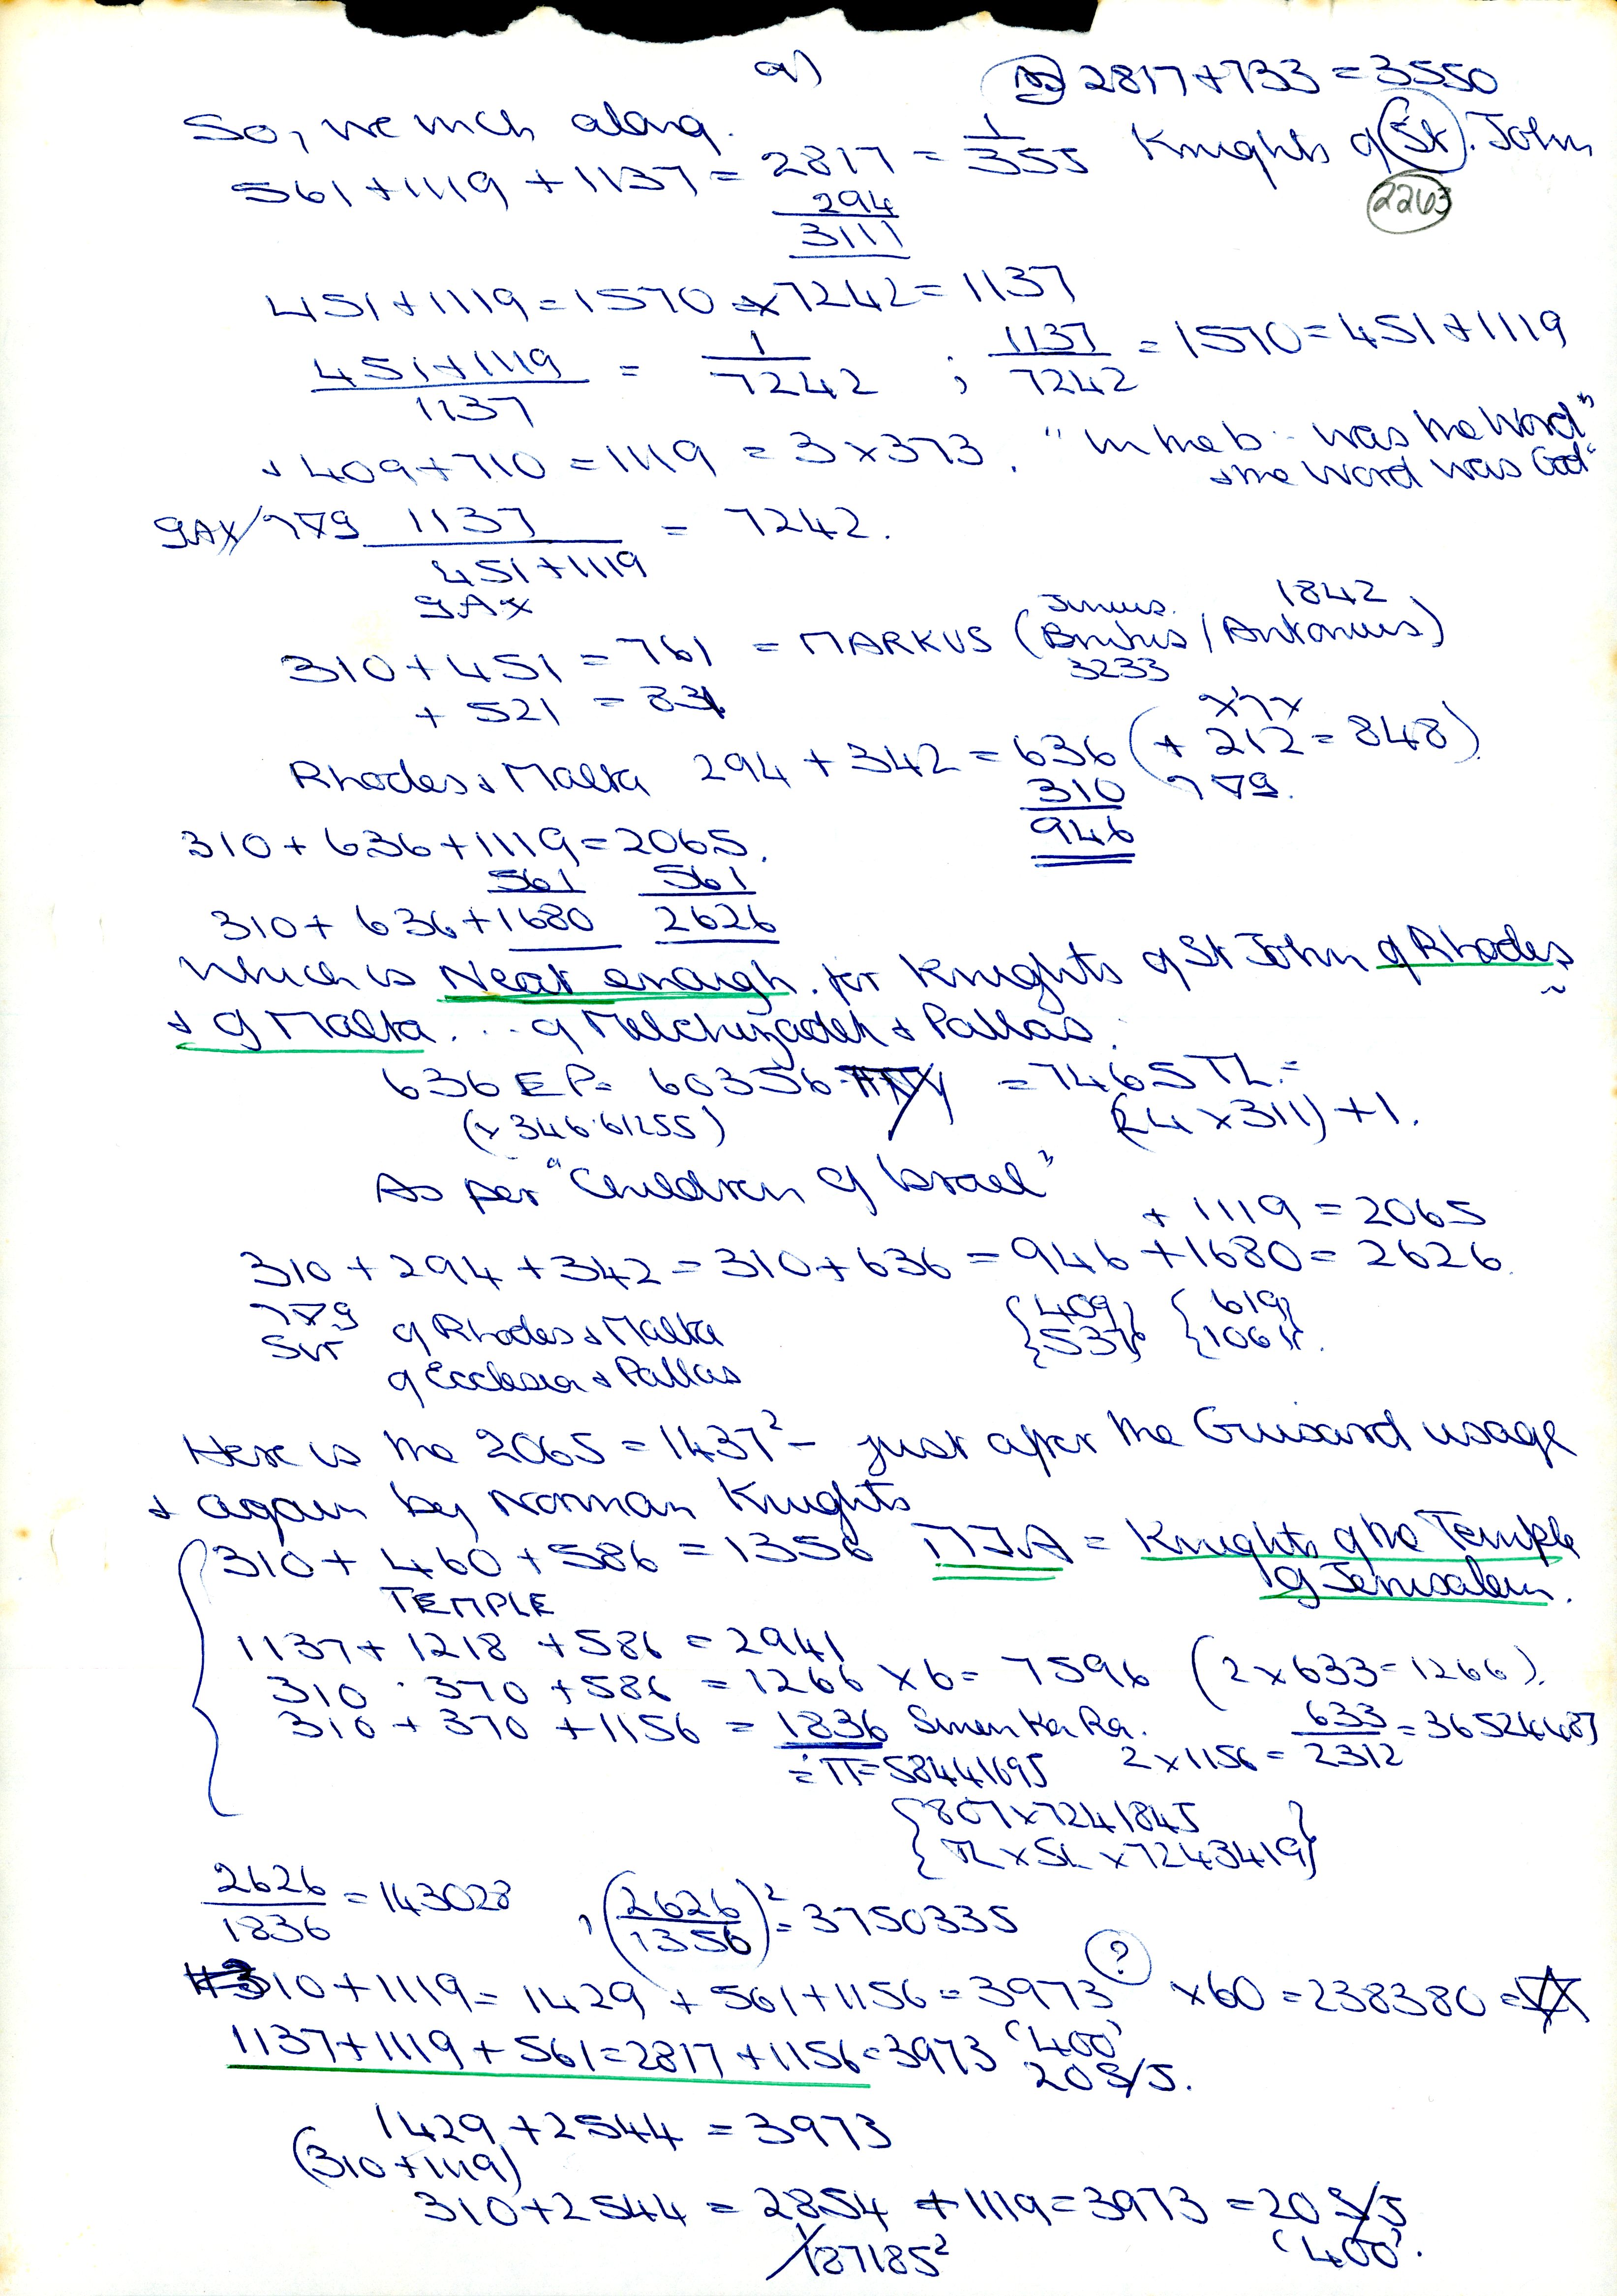 a)
2817+733 = 3550
So, we inch along.
561+1119+1137 = 2817 = 1/355 Knights of St. John
294
2263
3111
451+1119=1570 x 7242= 1137
451+1119 / 1137 = 1/7242 ; 1137/7242 = 1570=451+1119
+ 409+710 = 1119 = 3x373. "In the b.. was the Word"
+ the Word was God"
1137 / 451+1119 = 7242.
1842
Junius.
310+451 = 761 = MARKUS (Brutus / Antonius)
3233
+ 521 = 831
Rhodes + Malta 294 + 342 = 636 (+ 212 = 848)
310
946
310 + 636 +1119=2065.
561 561
310+ 636 +1680 2626
Which is Near enough. for Knights of St John of Rhodes
+ of Malta ... of Melchizadek + Pallas.
636 EP = 60356 = 7465 TL =
(x 346.61255) (24 x 311) +1.
As per "Children of Israel"
+ 1119 = 2065
310 + 294 + 342 = 310+636 = 946 +1680 = 2626.
{409} {619}
{537} {1061}.
of Rhodes + Malta
of Ecclesia + Pallas
Here is the 2065 = 1437² - just after the Guisard usage
+ again by Norman Knights
310 + 460 +586 = 1356 = Knights of the Temple
of Jerusalem.
TEMPLE
1137+ 1218 +586 = 2941
310 · 370 +586 = 1266 x 6= 7596 (2x633=1266).
310 + 370 +1156 = 1836 Smen Ka Ra. 633/2312 = 36524487
÷ π = 58441695 2x1156 =
{807x7241845
π x SL x 7243419}
2626/1836 = 143028 , (2626/1356)² = 3750335
310+1119= 1429 + 561+1156=3973 (?) x60 = 238380 =
1137+1119+561=2817+1156=3973 '400'
20 S/J.
1429 +2544 = 3973
(310+1119)
310+2544 = 2854 +1119=3973 = 20 S/J
1/187185² '400'.